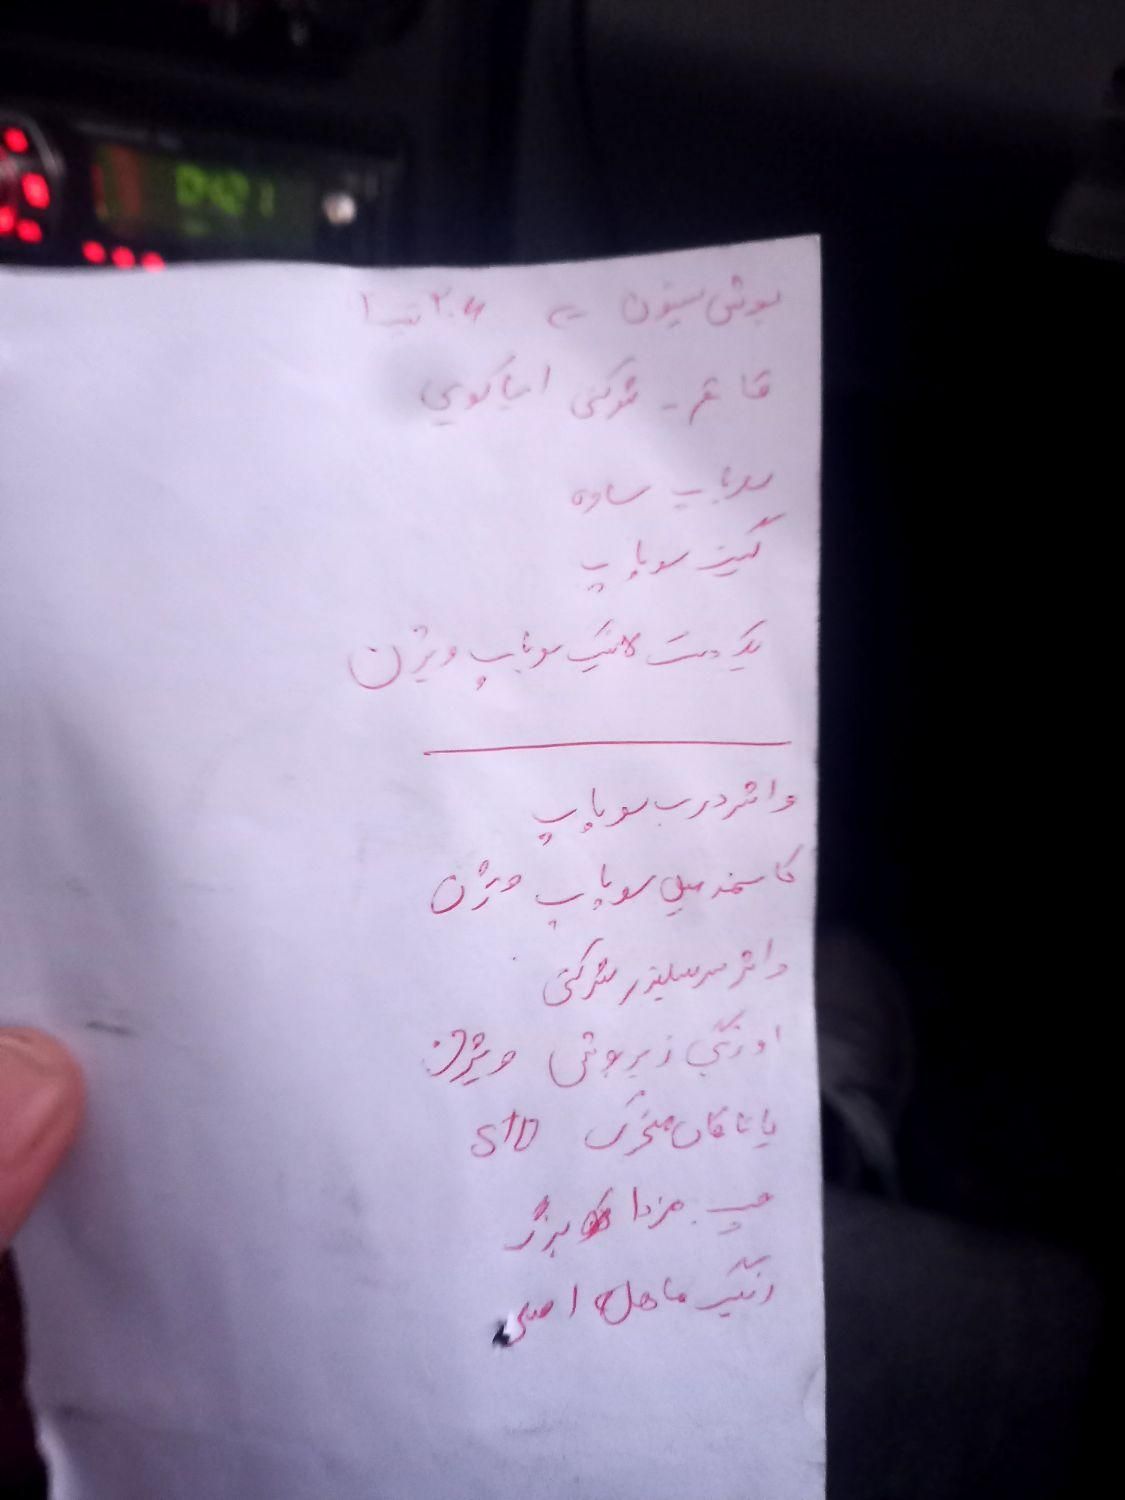 بوش سیلندر
فابریک شرکتی ایساکویی
سوپاپ ساده
گیت سوپاپ
یکدست لاستیک سوپاپ ویژن
واشر درب سوپاپ
کاسه نمد میل سوپاپ ویژن
واشر سرسیلندر شرکتی
اورینگ زیر بوش ویژن
یاتاقان متحرک STD
پمپ مزدا بزرگ
رینگ ماهل اصلی